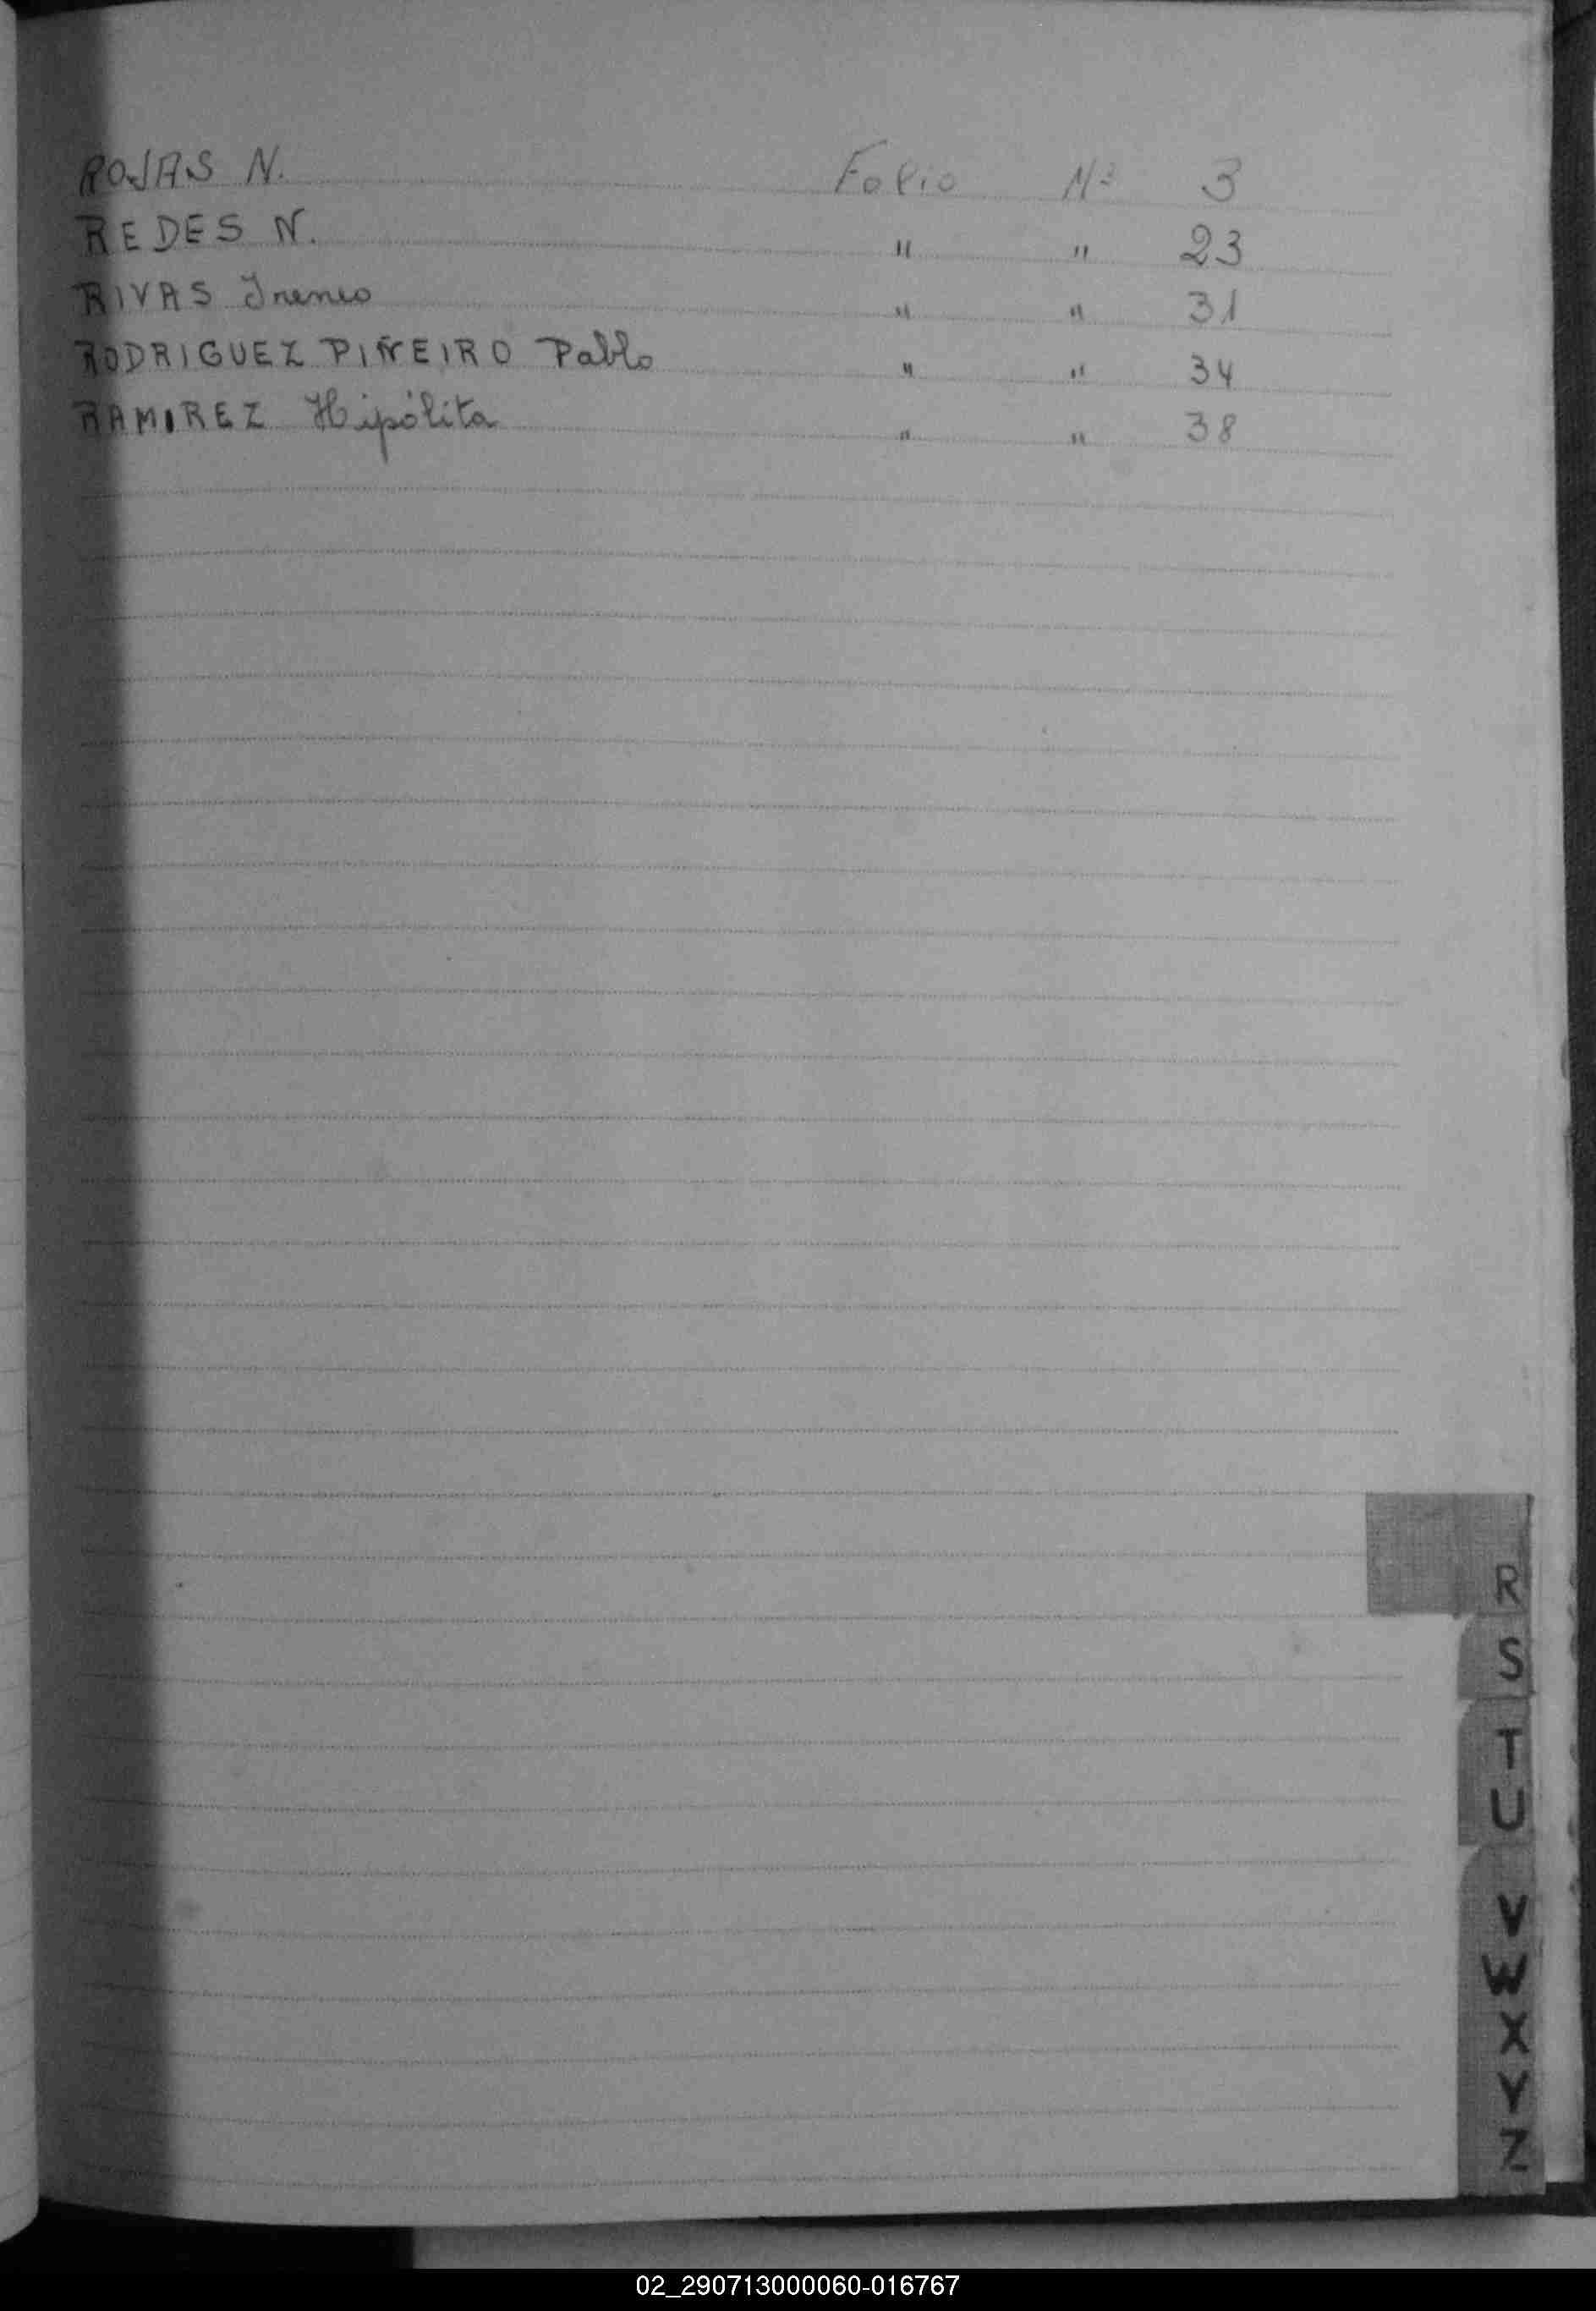 ROJAS N. Folio Nº 3
REDES N. " " 23
RIVAS Ireneo " " 31
RODRIGUEZ PIÑEIRO Pablo " " 34
RAMIREZ Hipólita " " 38
R
S
T
U
V
W
X
Y
Z
02_290713000060-016767